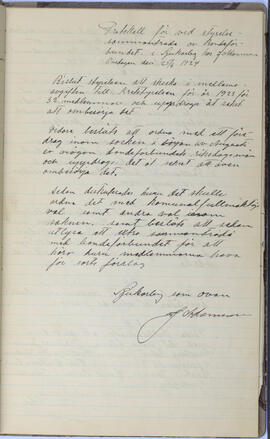 Protokoll för vid styrelse-
sammanträde av bondeför-
bundet i Njukarby hos J. Hannus
Onsdagen den 25/6 1924
Beslöt styrelsen att skicka in medlems
avgiften till Kretsstyrelsen för år 1923 för
32 medlemmar och uppdrogs åt sekret
att ombesörja det.
Vidare beslöts att ordna med ett före-
drag inom socken i början av Augusti
av någon bondeförbundets riksdagsmän
och uppdrogs det åt sekret att även
ombesörja det.
Sedan diskuterades huru det skulle
ordna det med komunalfullmäktig
val samt andra val inom
socknen, samt beslöts att redan
utlysa ett extra sammanträde
med bondeförbundet för att
höra huru medlemmarna hava
för sorts förslag
Njukarby som ovan